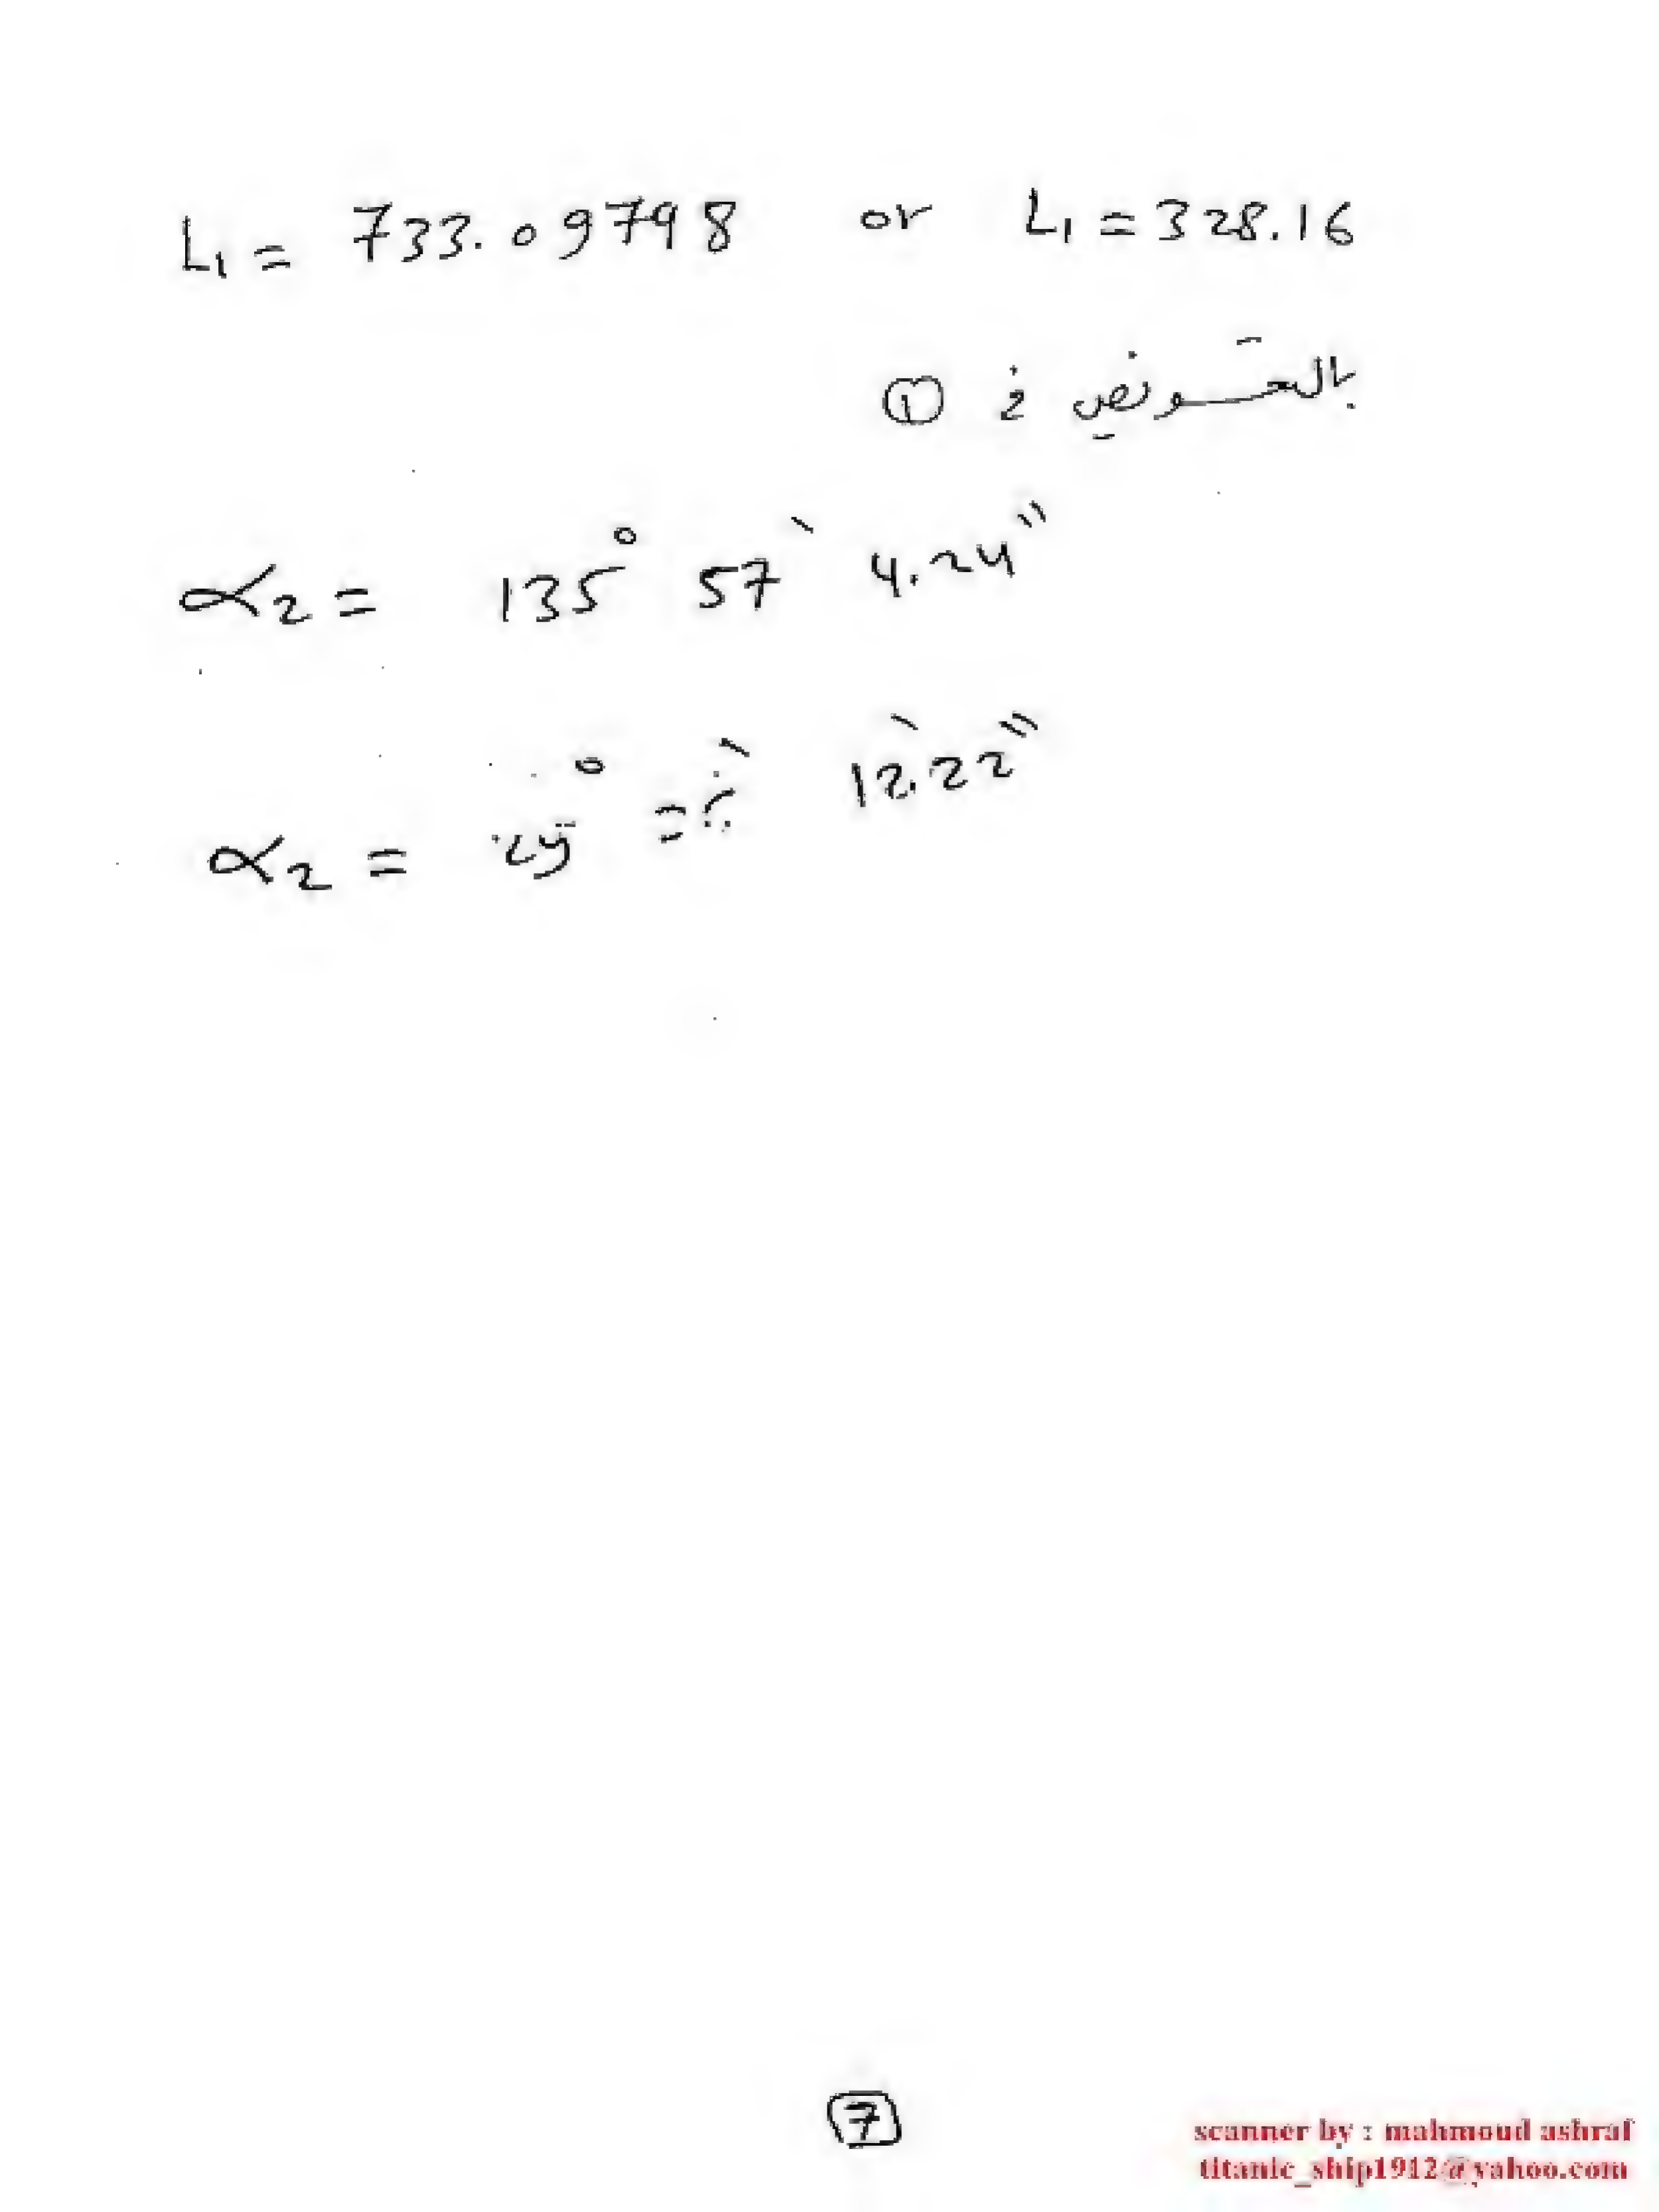 L₁ = 733.09798 or L₁ = 328.16
بالتعويض في ①
α₂ = 135° 57' 4.24"
α₂ = 12.22"
7
scanner by : mahmoud ashraf
titanic_ship1912@yahoo.com